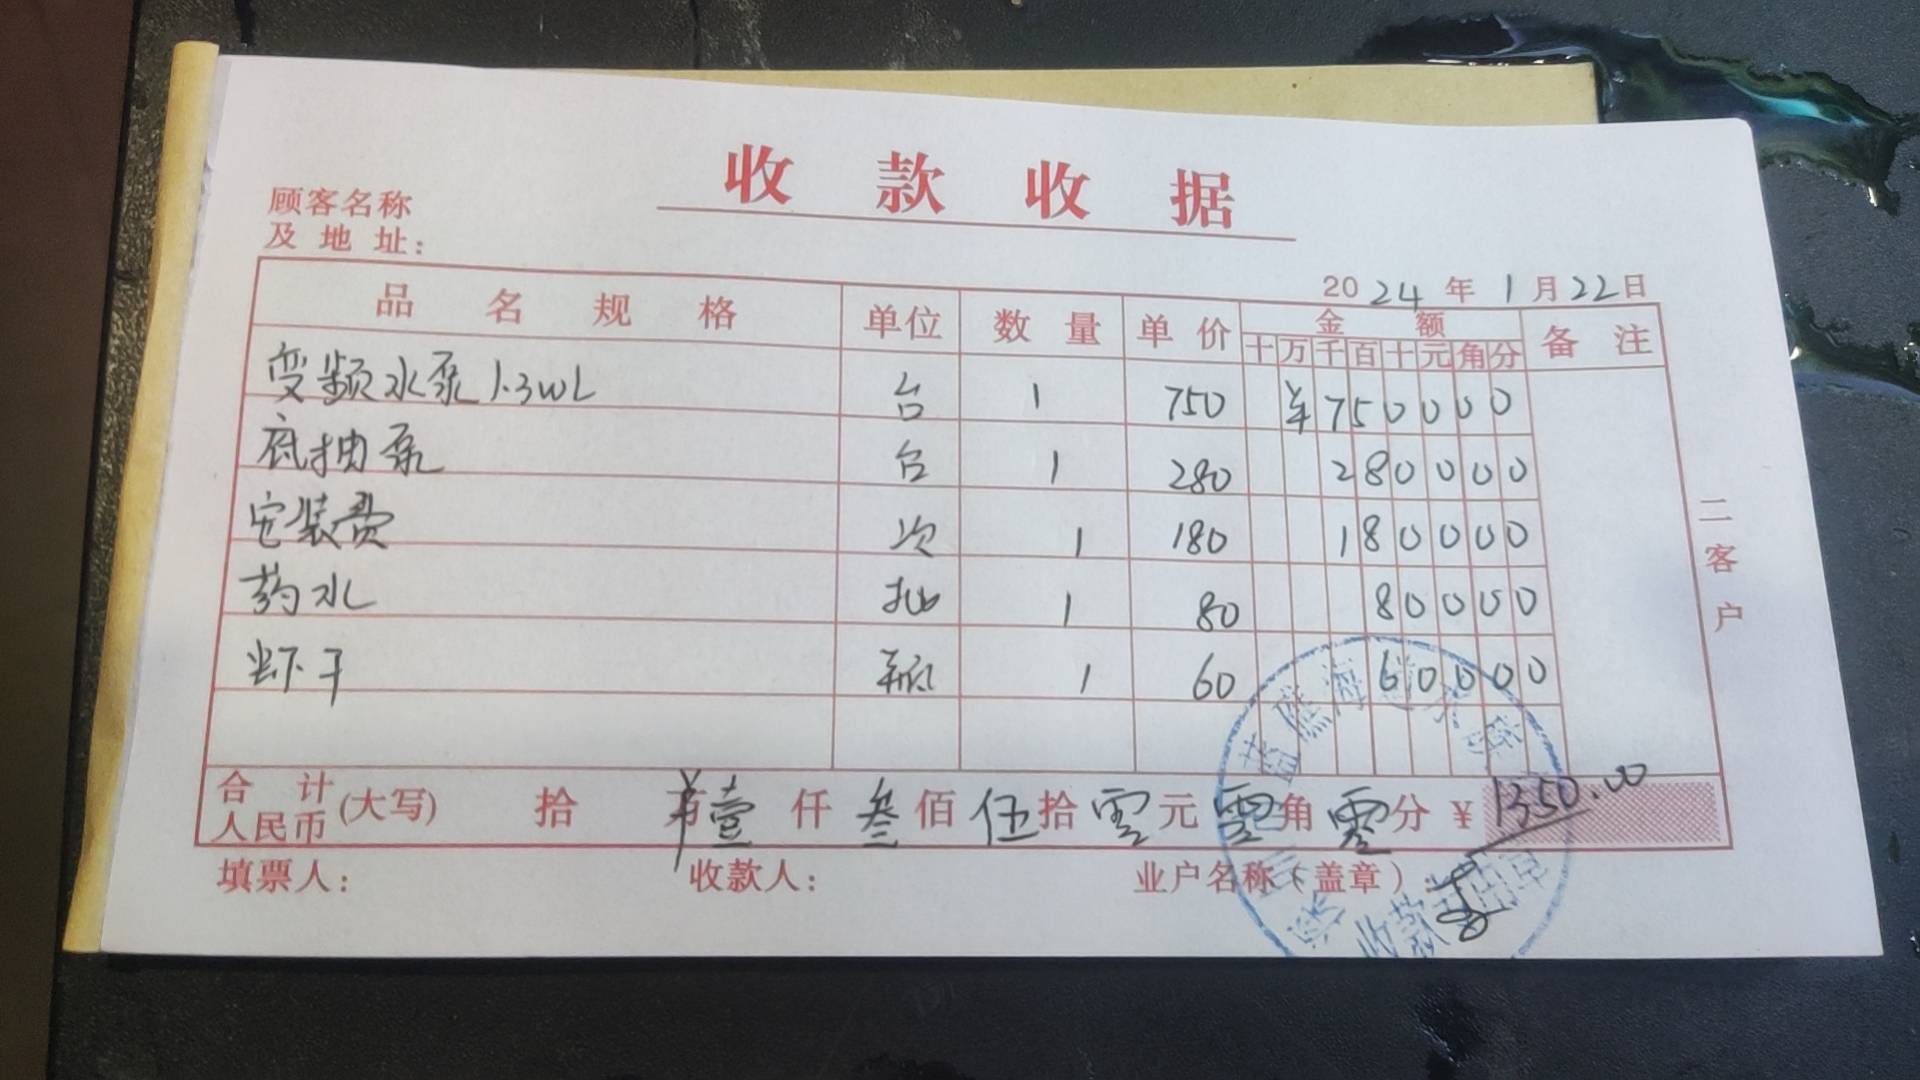 收款收据
顾客名称
及地址:
2024年1月22日
品名规格 单位 数量 单价 金额 备注
十万千百十元角分
变频水泵1.3WL 台 1 750 ¥750000
底抽泵 台 1 280 280000
安装费 次 1 180 180000
药水 批 1 80 80000
虾干 瓶 1 60 60000
二客户
合计人民币(大写) 拾 ¥壹仟叁佰伍拾零元零角零分 ¥1350.00
填票人: 收款人: 业户名称(盖章):
收款